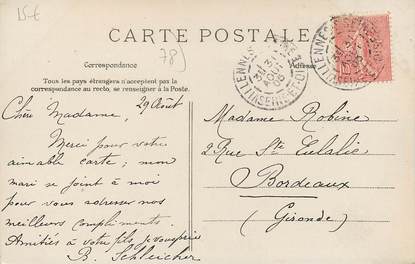 15€
CARTE POSTALE
789
Correspondance
Adresse
Tous les pays étrangers n'acceptent pas la
correspondance au recto, se renseigner à la Poste.
29 Août
Chère Madame,
Merci pour votre
aimable carte; mon
mari se joint à moi
pour vous adresser nos
meilleurs compliments.
Amitiés à votre fils, je vous prie
B. Schleicher
Madame Robine
2 Rue Ste Eulalie
Bordeaux
(Gironde)